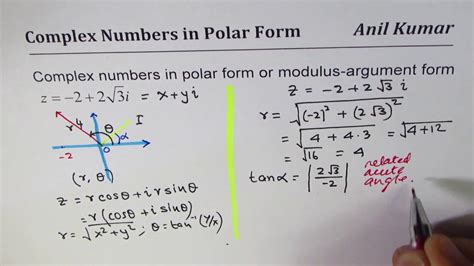 Complex Numbers in Polar Form
Anil Kumar
Complex numbers in polar form or modulus-argument form
z = -2 + 2√3i = x + yi
r 4
θ
I
α
-2
O
(r, θ)
z = r cosθ + i r sinθ
= r (cosθ + i sinθ)
r = √x² + y² ; θ = tan⁻¹ (y/x)
z = -2 + 2√3 i
r = √(-2)² + (2√3)²
= √4 + 4·3 = √4+12
= √16 = 4
tan α = |2√3/-2|
related
acute
angle.